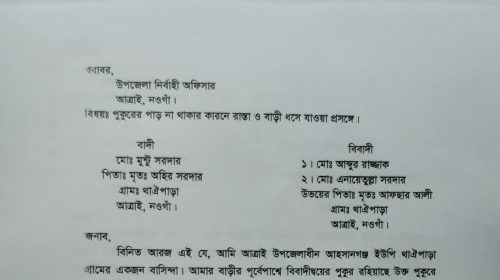 বরাবর,
উপজেলা নির্বাহী অফিসার
আত্রাই, নওগাঁ।
বিষয়ঃ পুকুরের পাড় না থাকার কারনে রাস্তা ও বাড়ী ধসে যাওয়া প্রসঙ্গে।
বাদী
মোঃ মুন্টু সরদার
পিতাঃ মৃতঃ অহির সরদার
গ্রামঃ থাঐপাড়া
আত্রাই, নওগাঁ।
বিবাদী
১। মোঃ আব্দুর রাজ্জাক
২। মোঃ এনায়েতুল্লা সরদার
উভয়ের পিতাঃ মৃতঃ আফছার আলী
গ্রামঃ থাঐপাড়া
আত্রাই, নওগাঁ।
জনাব,
বিনিত আরজ এই যে, আমি আত্রাই উপজেলাধীন আহসানগঞ্জ ইউপি থাঐপাড়া
গ্রামের একজন বাসিন্দা। আমার বাড়ীর পূর্বেপাশে বিবাদীদ্বয়ের পুকুর রহিয়াছে উক্ত পুকুরে